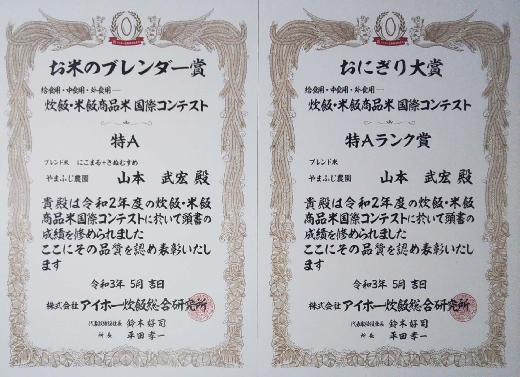 お米のブレンダー賞
給食用・中食用・外食用──
炊飯・米飯商品米 国際コンテスト
特A
ブレンド米 にこまる+きぬむすめ
やまふじ農園 山本 武宏 殿
貴殿は令和2年度の炊飯・米飯
商品米国際コンテストに於いて頭書の
成績を修められました
ここにその品質を認め表彰いたし
ます
令和3年 5月 吉日
株式会社 アイホー炊飯総合研究所
代表取締役社長 鈴木 好司
所長 平田 孝一
おにぎり大賞
給食用・中食用・外食用──
炊飯・米飯商品米 国際コンテスト
特Aランク賞
ブレンド米
やまふじ農園 山本 武宏 殿
貴殿は令和2年度の炊飯・米飯
商品米国際コンテストに於いて頭書の
成績を修められました
ここにその品質を認め表彰いたし
ます
令和3年 5月 吉日
株式会社 アイホー炊飯総合研究所
代表取締役社長 鈴木 好司
所長 平田 孝一